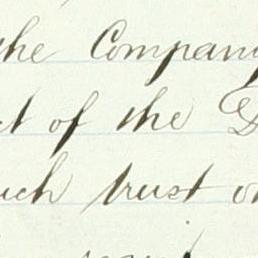 the Company
ct of the
such trust o